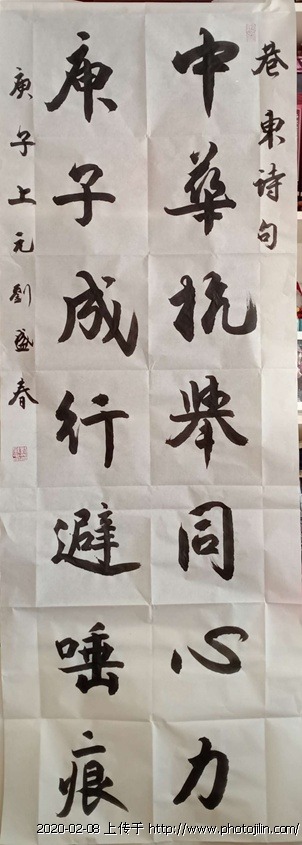 巷東诗句
中華抗舉同心力
庚子成行避唾痕
庚子上元劉盛春
2020-02-08 上传于 http://www.photojilin.com/